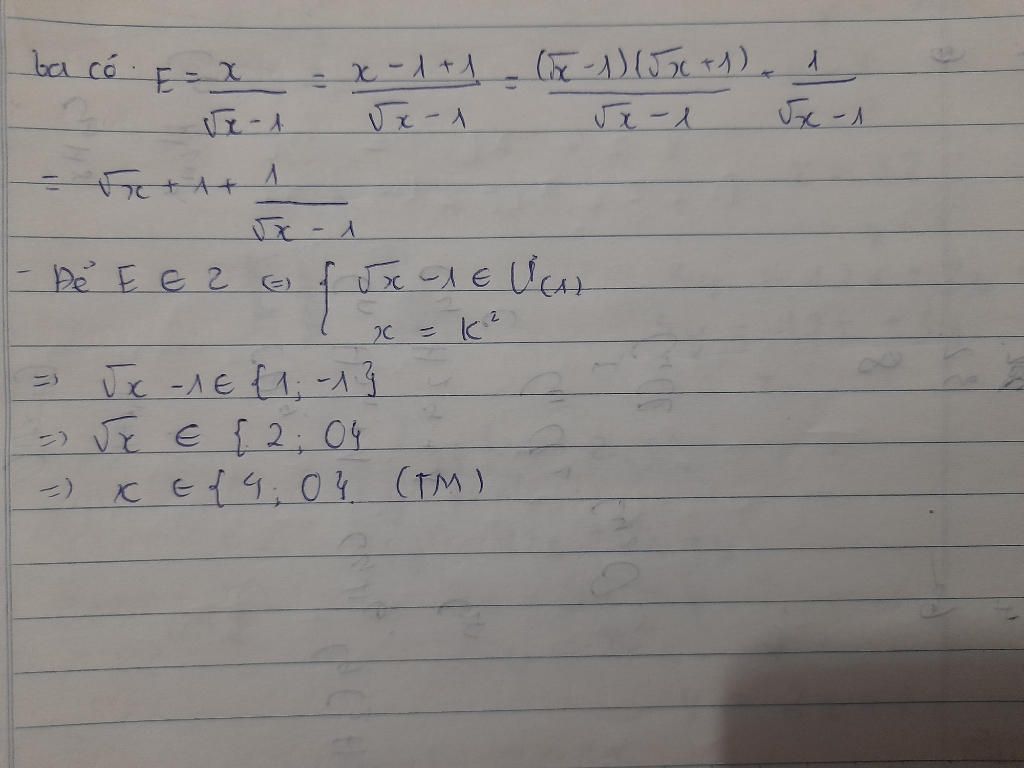 ba có. E = x/(√x - 1) = (x - 1 + 1)/(√x - 1) = (√x - 1)(√x + 1)/(√x - 1) + 1/(√x - 1)
= √x + 1 + 1/(√x - 1)
- Để E ∈ Z <=> { √x - 1 ∈ Ư(1)
x = k²
=> √x - 1 ∈ {1; -1}
=> √x ∈ {2; 0}
=> x ∈ {4; 0} (TM)